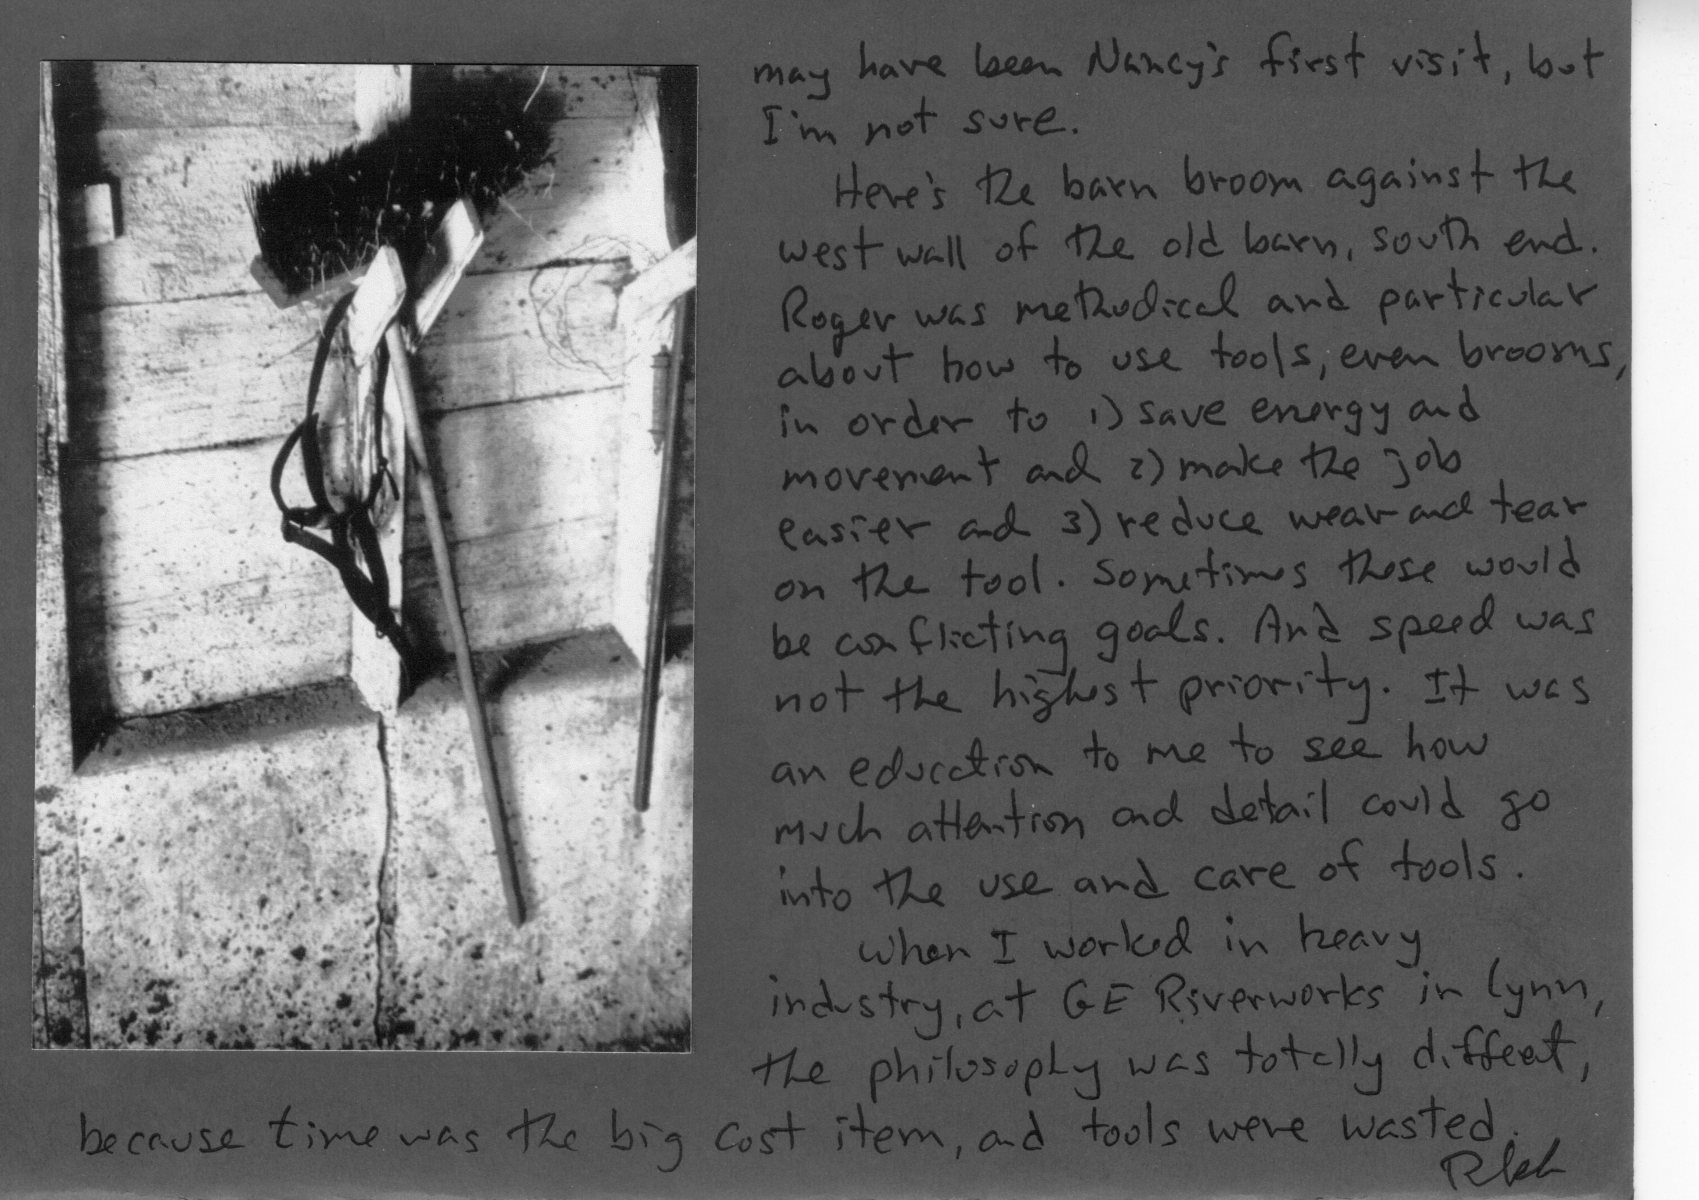 may have been Nancy's first visit, but
I'm not sure.
Here's the barn broom against the
west wall of the old barn, south end.
Roger was methodical and particular
about how to use tools, even brooms,
in order to 1) save energy and
movement and 2) make the job
easier and 3) reduce wear and tear
on the tool. Sometimes these would
be conflicting goals. And speed was
not the highest priority. It was
an education to me to see how
much attention and detail could go
into the use and care of tools.
When I worked in heavy
industry, at GE Riverworks in Lynn,
the philosophy was totally diffeet,
because time was the big cost item, and tools were wasted.